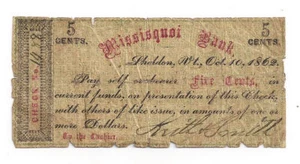 5 CENTS. 5 CENTS.
Missisquoi Bank
Sheldon, Vt., Oct. 10, 1862.
Pay self or bearer Five Cents, in
current funds, on presentation of this Check,
with others of like issue, in amounts of one or
more Dollars.
To the Cashier.
CHECK No.